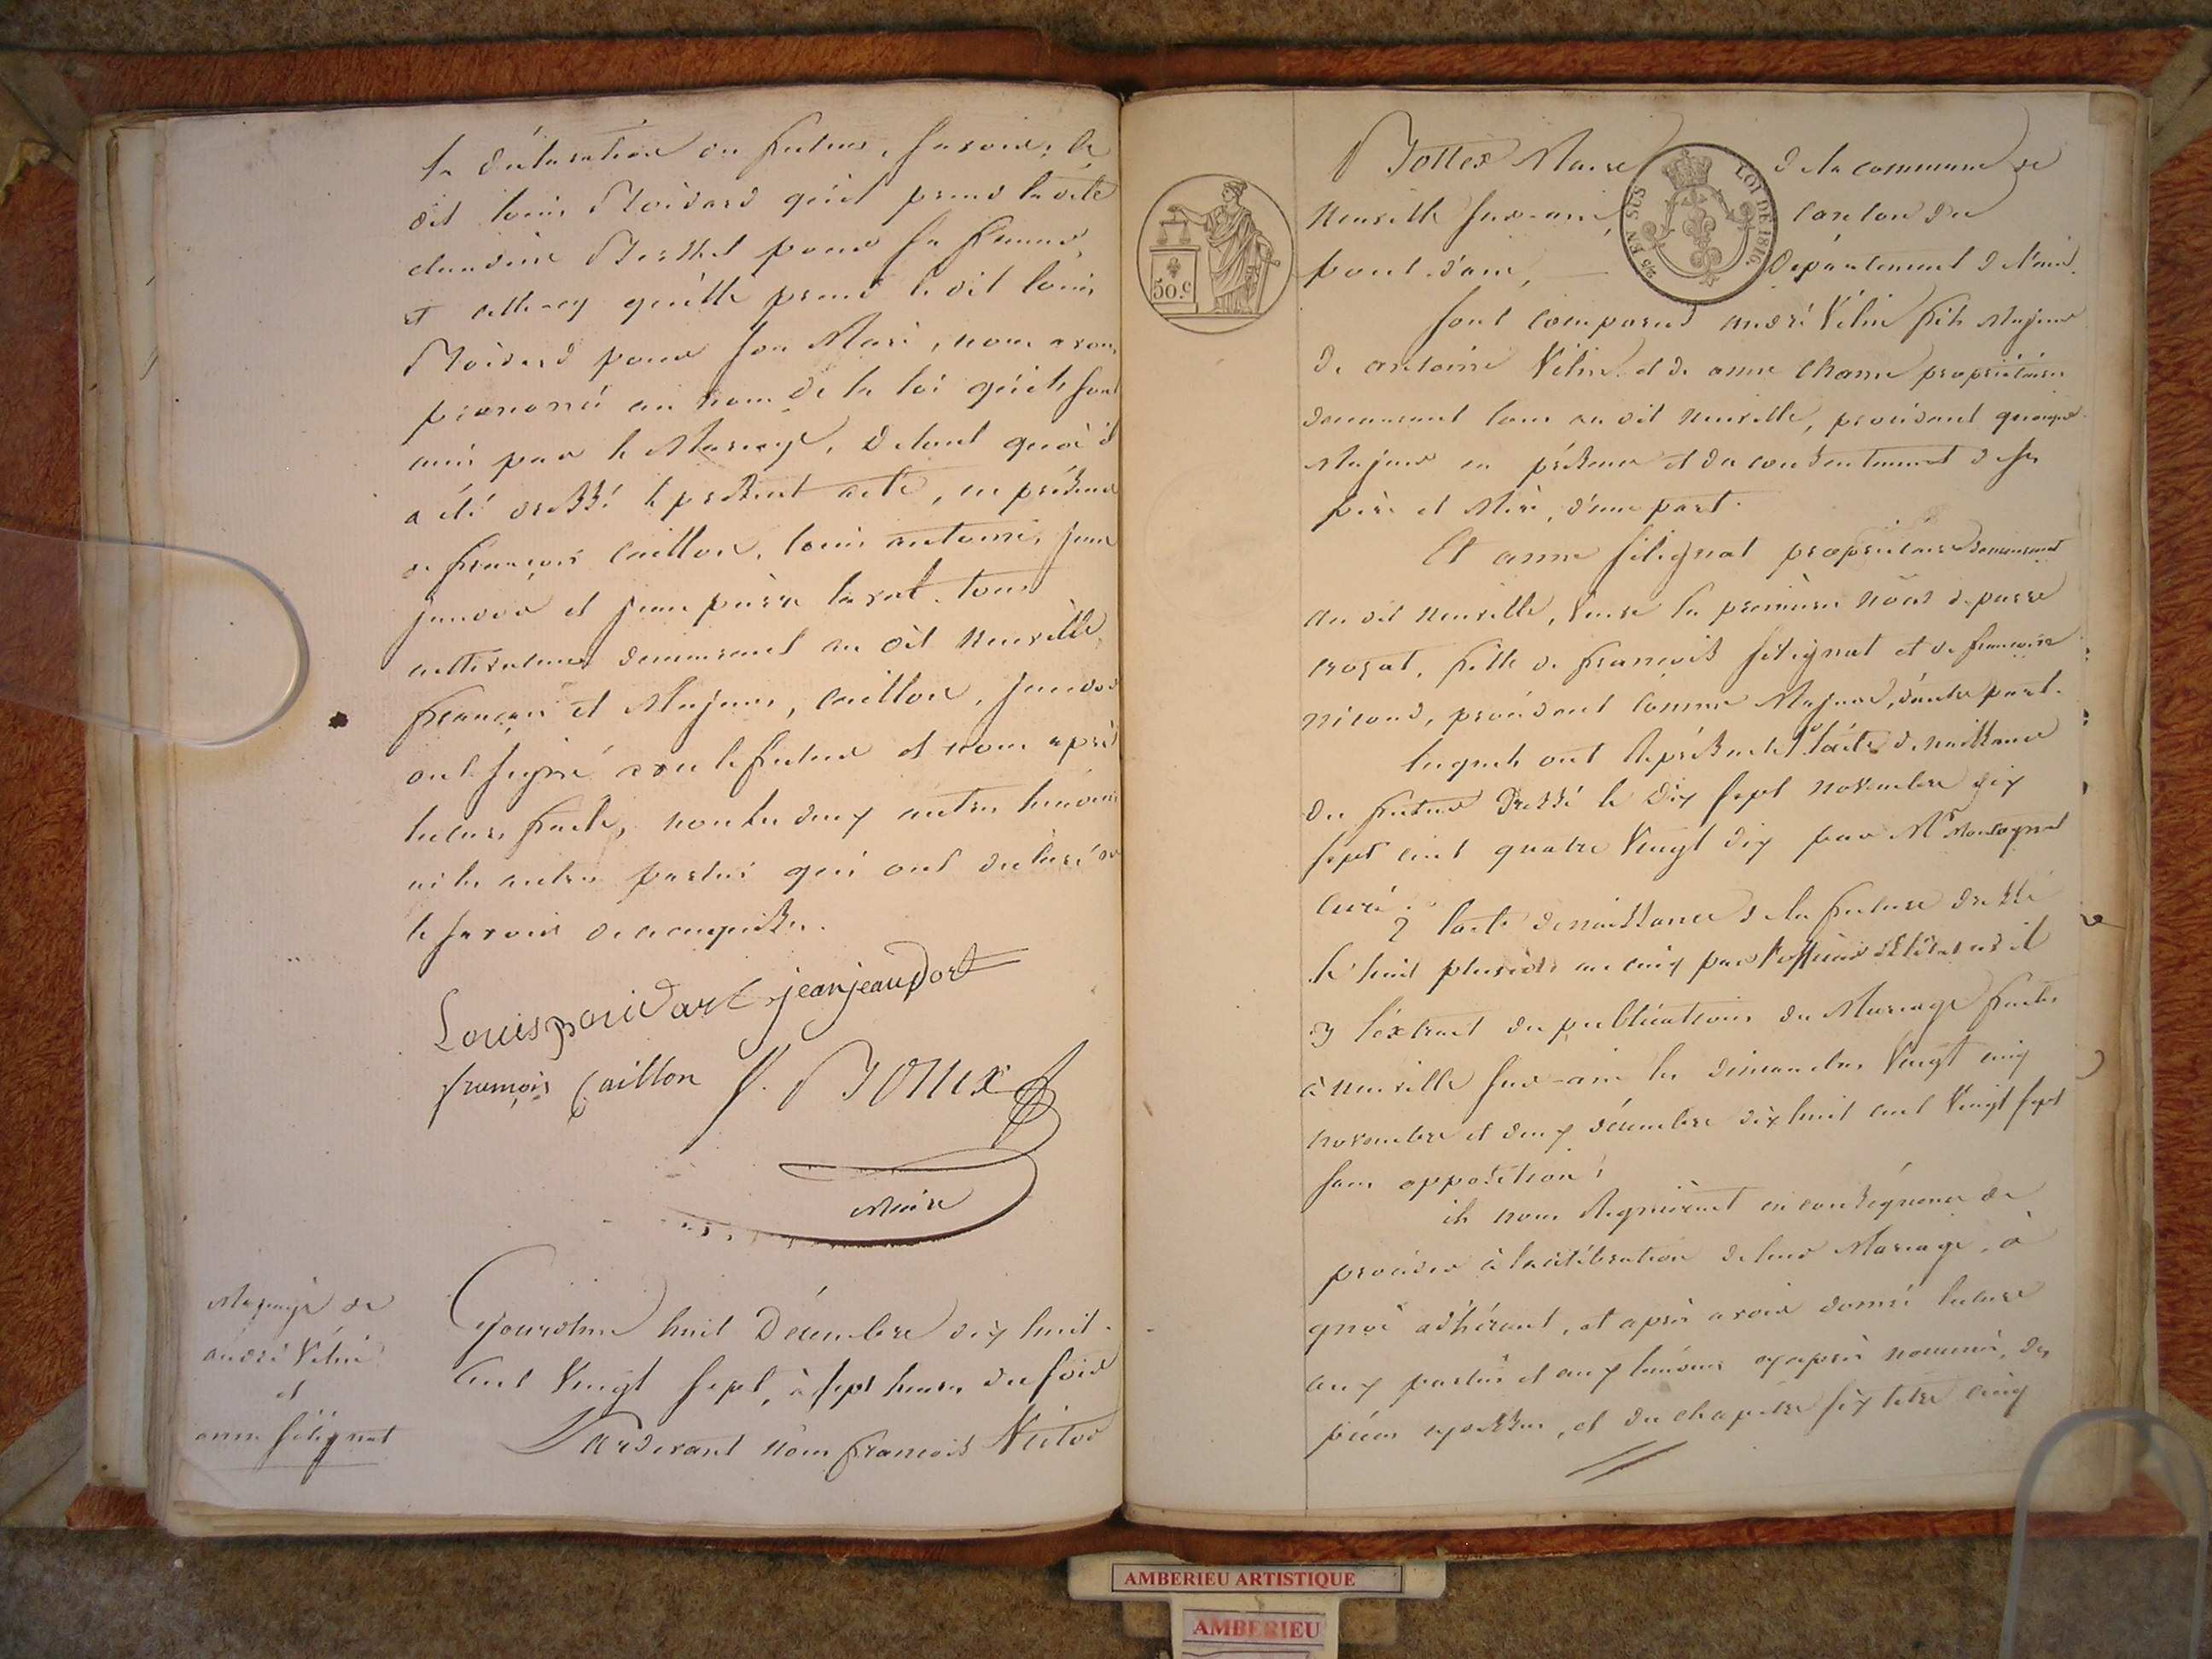 la déclaration du futur, savoir, le
dit louis Poidard qu'il prend la dite
claudine Berthet pour sa femme
et celle-cy qu'elle prend le dit louis
Poidard pour son Mari, nous avons
prononcé au nom de la loi qu'ils sont
unis par le Mariage, de tout quoi il
a été dressé le présent acte, en présence
de françois Caillon, louis antoine, jean
jeandod et jean pierre laval tous
cultivateurs demeurant au dit neuville
français et Majeurs, Caillon, jeandod
ont signé avec le futur et nous après
lecture faite, non les deux autres témoins
ni les autres parties qui ont déclaré ne
le savoir de ce enquis.
Louis poidart jean jeandot
francois Caillon f. Bottex
Maire
Mariage de
andré Vélin
et
anne silignat
Ajourdhui huit Décembre dix huit
Cent Vingt Sept, à sept heures du soir
Pardevant nous françois Victor
Bottex Maire de la commune de
Neuville sur-ain, canton du
pont-d'ain, Département de l'ain.
sont comparus andré Vélin fils Majeur
de antoine Vélin et de anne Channe propriétaires
demeurant tous au dit neuville, procédant quoique
Majeur en présence et du consentement de ses
père et Mère, d'une part.
Et anne silignat propriétaire demeurant
au dit neuville, veuve en premières noces de pierre
crozat, fille de françois silignat et de françoise
nicoud, procédant comme Majeure, d'autre part.
lesquels ont représenté 1° l'acte de naissance
du futur dressé le dix sept novembre dix
sept cent quatre Vingt dix par Mr
curé.
2 l'acte de naissance de la future dressé
le huit pluviôse an cinq par l'officier de l'état civil
3 l'extrait des publications du Mariage faites
à neuville sur-ain les dimanches Vingt cinq
novembre et deux décembre dix huit cent Vingt sept
sans opposition.
ils nous requièrent en conséquence de
procéder à la célébration de leur Mariage, à
quoi adhérant, et après avoir donné lecture
aux parties et aux témoins cy après nommés, des
pièces apportées, et du chapitre six titre cinq
50.c
5/10 EN SUS
LOI DE 1816.
AMBERIEU ARTISTIQUE
AMBERIEU